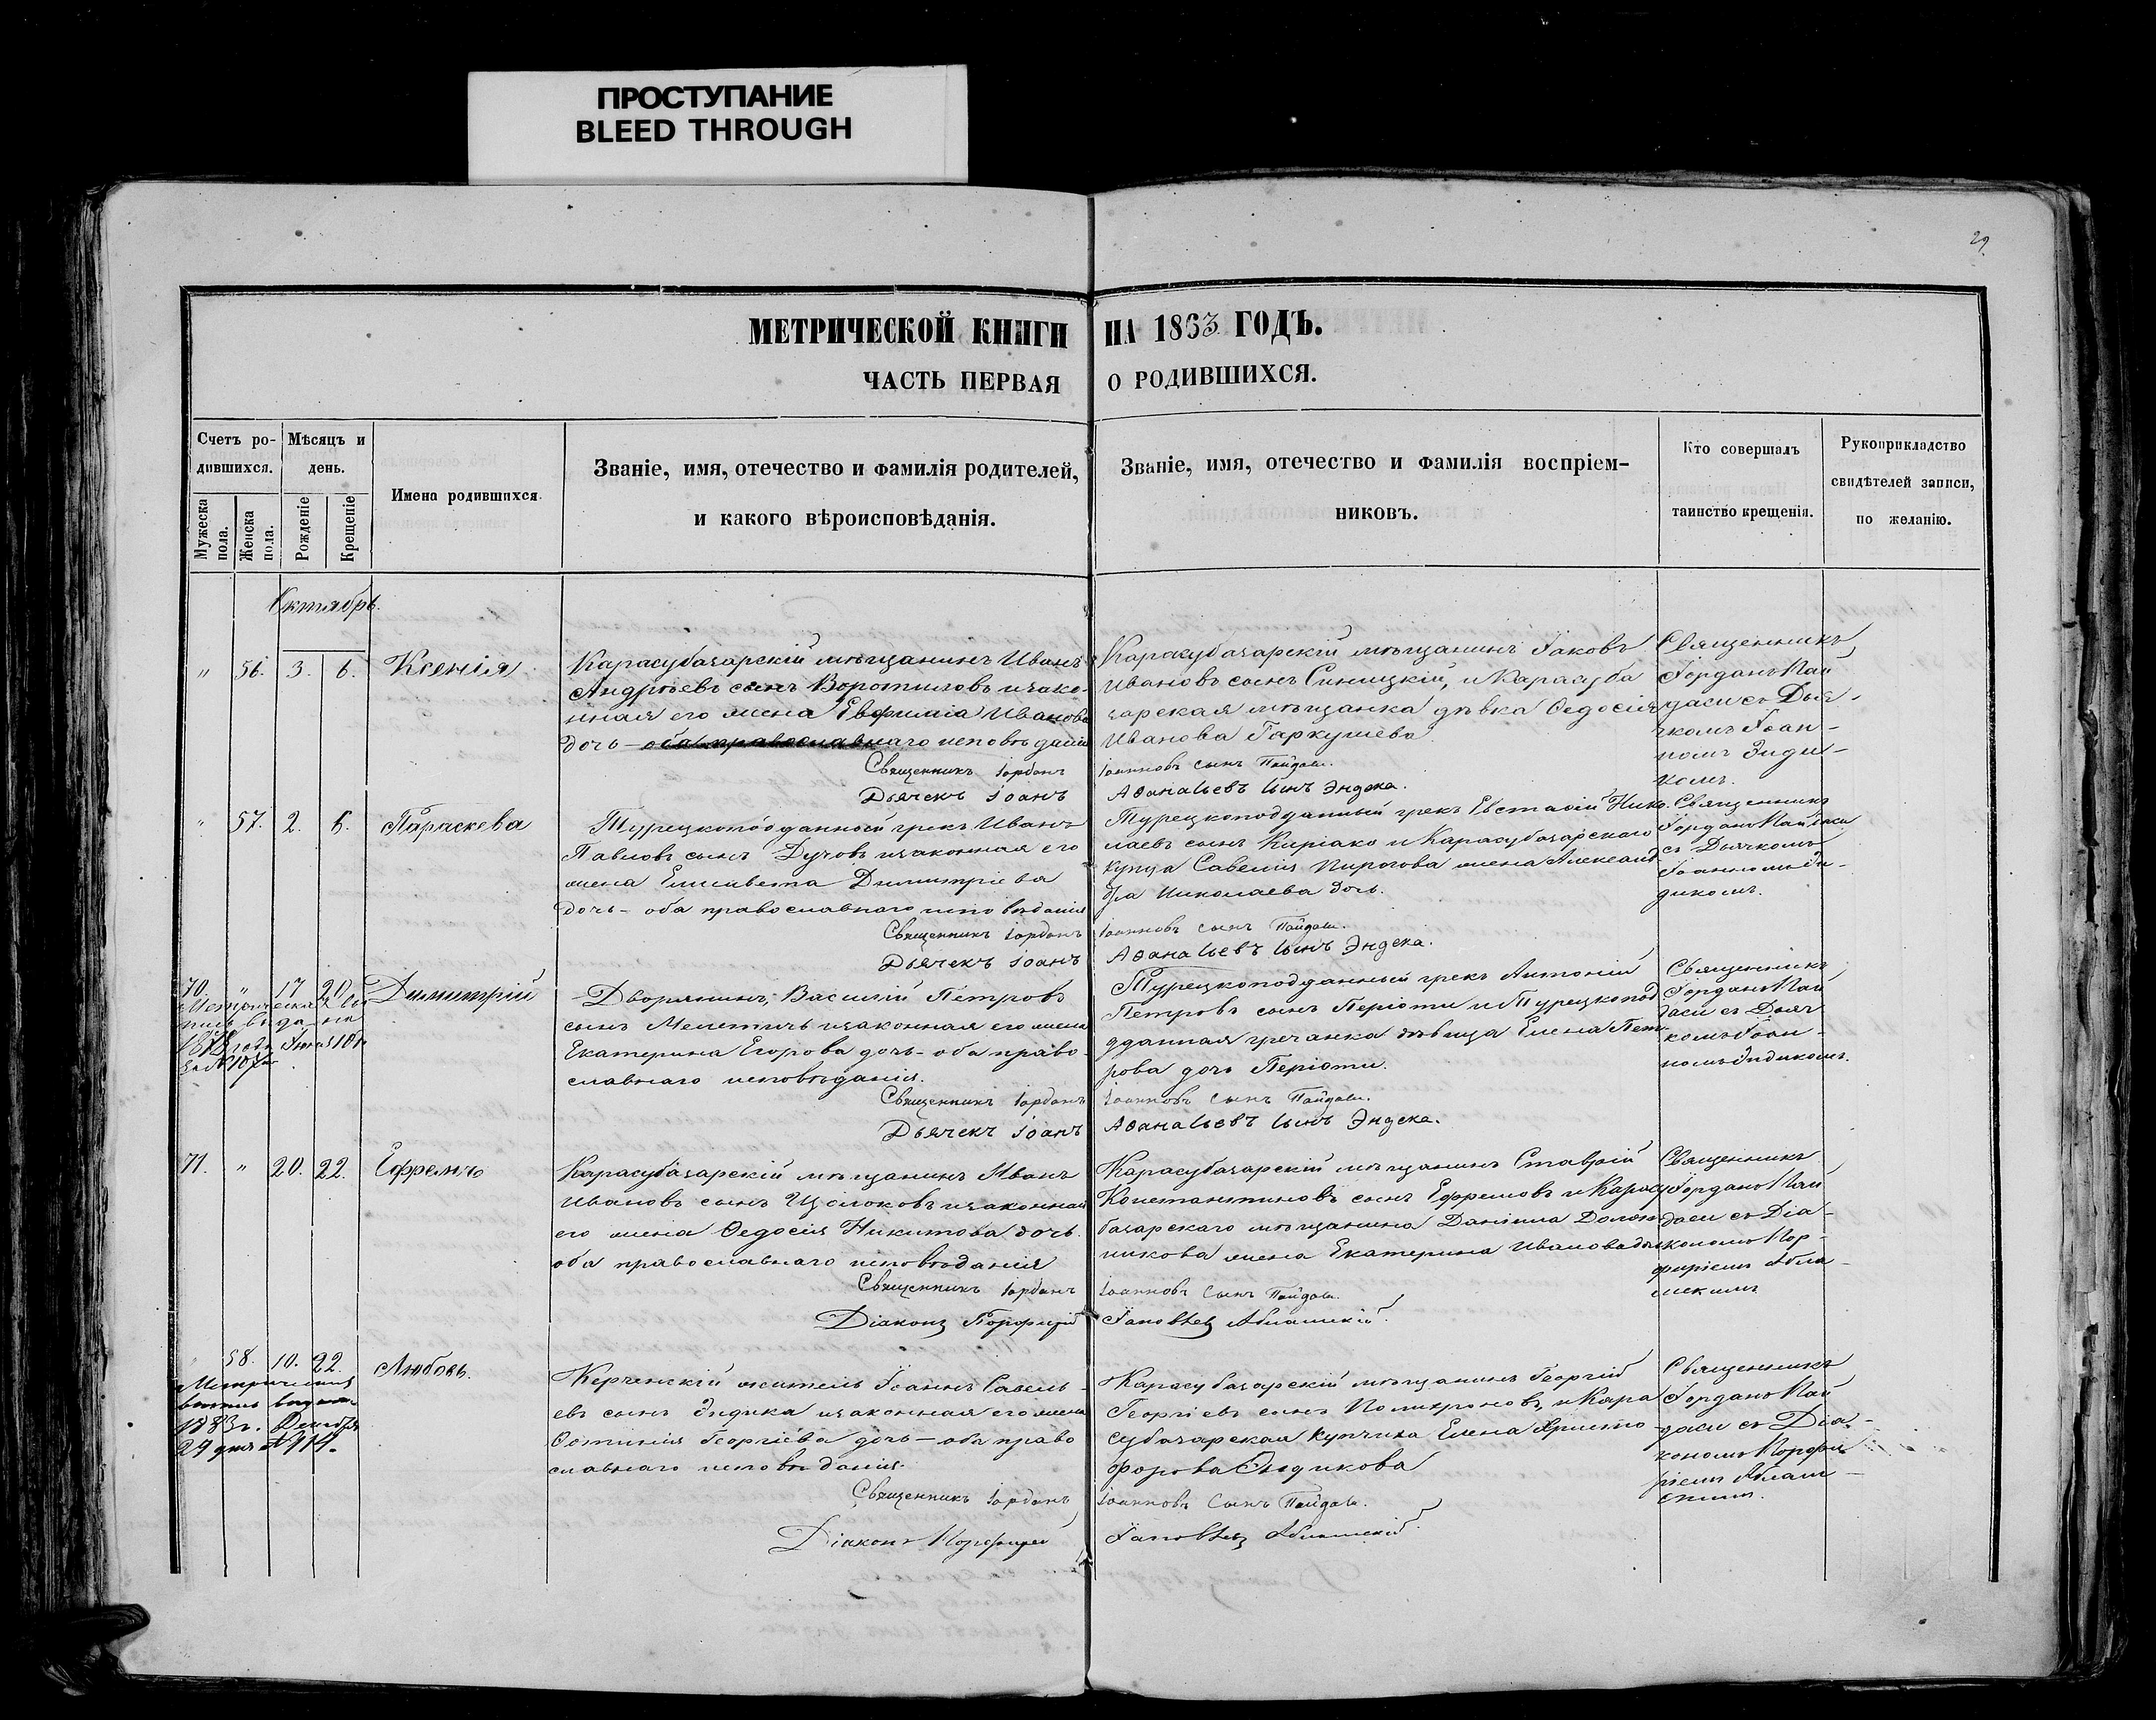 ПРОСТУПАНИЕ
BLEED THROUGH
29
МЕТРИЧЕСКОЙ КНИГИ НА 1863 ГОДЪ.
ЧАСТЬ ПЕРВАЯ О РОДИВШИХСЯ.
Счетъ ро-
дившихся.
Мужеска пола.
Женска пола.
Мѣсяцъ и
день.
Рожденіе
Крещеніе
Имена родившихся.
Званіе, имя, отечество и фамилія родителей,
и какого вѣроисповѣданія.
Званіе, имя, отечество и фамилія воспріем-
никовъ.
Кто совершалъ
таинство крещенія.
Рукоприкладство
свидѣтелей записи,
по желанію.
Октябрь.
" 56. 3. 6. Ксенія.
Карасубазарскій мѣщанинъ Иванъ
Андрѣевъ сынъ Воротиловъ изако-
нная его жена Евфимія Иванова
дочь – оба православнаго исповѣданія
Священникъ Іорданъ
Дьячекъ Іоанъ
Карасубазарскій мѣщанинъ Іаковъ
Ивановъ сынъ Синицкій, и Карасуба
зарская мѣщанка дѣвка Ѳедосія
Иванова Гаркушева
Іоанновъ сынъ Пайдаси.
Аѳанасьевъ сынъ Эндека.
Священникъ
Іорданъ Пай
даси съ Дья-
чкомъ Іоан-
номъ Энди-
комъ.
" 57. 2. 6. Параскева
Турецкоподданный грекъ Иванъ
Павловъ сынъ Дучовъ изаконная его
жена Елисавета Димитріева
дочь – оба православнаго исповѣданія
Священникъ Іорданъ
Дьячекъ Іоанъ
Турецкоподданный грекъ Евстаѳій Нико
лаевъ сынъ Киріако и Карасубазарскаго
купца Савелія Пирогова жена Александ-
дра Николаева дочь.
Іоанновъ сынъ Пайдаси.
Аѳанасьевъ сынъ Эндека.
Священникъ
Іорданъ Пайдаси
съ Дьячкомъ
Іоанномъ Эн-
дикомъ.
70. " 17 20. Димитрій
Метрическая вы
пись выдана
1878 года Іюня 10 дня
за № 107
Дворянинъ, Василій Петровъ
сынъ Мелетичъ изаконная его жена
Екатерина Егорова дочь – оба право-
славнаго исповѣданія.
Священникъ Іорданъ
Дьячекъ Іоанъ
Турецкоподданный грекъ Антоній
Петровъ сынъ Періоти и Турецкопод
дданная гречанка дѣвица Елена Пет
рова дочь Періоти.
Іоанновъ сынъ Пайдаси.
Аѳанасьевъ сынъ Эндека.
Священникъ
Іорданъ Пай
даси съ Дьяч
комъ Іоан-
номъ Эндикомъ.
71. " 20. 22. Ефремъ
Карасубазарскій мѣщанинъ Иванъ
Ивановъ сынъ Щолоковъ изаконная
его жена Ѳедосія Никитова дочь.
оба православнаго исповѣданія
Священникъ Іорданъ
Діаконъ Порфирій
Карасубазарскій мѣщанинъ Ставрій
Константиновъ сынъ Ефремовъ и Карасу
базарскаго мѣщанина Даніила Долж
никова жена Екатерина Иванова дочь
Іоанновъ сынъ Пайдаси.
Іаковлевъ Аблажскій.
Священникъ
Іорданъ Пай
даси съ Діа-
кономъ Пор-
фиріемъ Абла-
" 58. 10. 22. Любовь.
Метрическая
выпись выдана
1883 г. Декабря
29 дня № 114.
Керченскій житель Іоаннъ Савель-
евъ сынъ Эндика изаконная его жена
Ѳотинія Георгіева дочь – оба право
славнаго исповѣданія.
Священникъ Іорданъ
Діаконъ Порфирій
Карасубазарскій мѣщанинъ Георгій
Георгіевъ сынъ Поликроновъ, и Кара
субазарская купчиха Елена Христо-
форова Эндикова
Іоанновъ сынъ Пайдаси.
Іаковлевъ Аблажскій.
Священникъ
Іорданъ Пай
даси съ Діа-
кономъ Порфи-
ріемъ Аблаж-
скимъ.